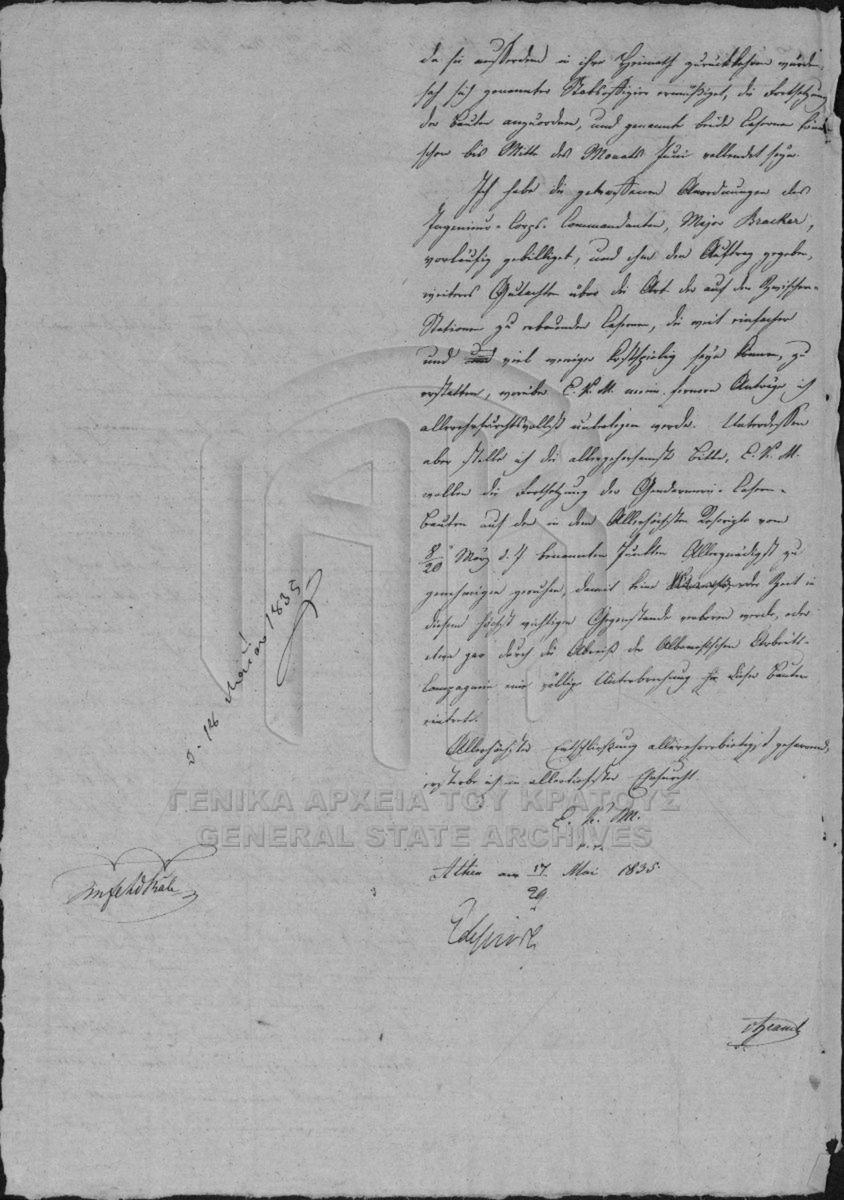 da sie außerdem in ihre Heimath zurückkehren würden,
sah sich genannter Stabsoffizier ermüßiget, die Fortsetzung
der Bauten anzuordnen, und genannte beide Casernen
schon bis Mitte des Monats Juni vollendet seyn.
Ich habe die getroffenen Anordnungen des
Ingenieur-Corps-Commandanten, Major Bracker,
vorläufig gebilliget, und ihm den Auftrag gegeben,
weiteres Gutachten über die Art der auf den Zwischen-
Stationen zu erbauenden Casernen, die weit einfacher
und viel weniger kostspielig seyn können, zu
erstatten, worüber E. K. M. meine fernern Anträge ich
allerehrfurchtsvollst unterlegen werde. Unterdessen
aber stelle ich die allergehorsamste Bitte, E. K. M.
wollen die Fortsetzung der Gendarmerie-Casern-
Bauten auf den in dem Allerhöchsten Rescripte vom
8/20 März d. J. benannten Punkten Allergnädigst zu
genehmigen geruhen, damit keine Zeit in
diesem höchst wichtigen Gegenstande verloren werde, oder
etwa gar durch die Abreise der Albanesischen Arbeits-
Compagnie eine völlige Unterbrechung dieser Bauten
eintrete.
Allerhöchster Entschließung allerehrerbietigst geharrend,
ersterbe ich in allertiefster Ehrfurcht
E. K. M.
Athen am 17/29 Mai 1835.
1835
ΓΕΝΙΚΑ ΑΡΧΕΙΑ ΤΟΥ ΚΡΑΤΟΥΣ
GENERAL STATE ARCHIVES